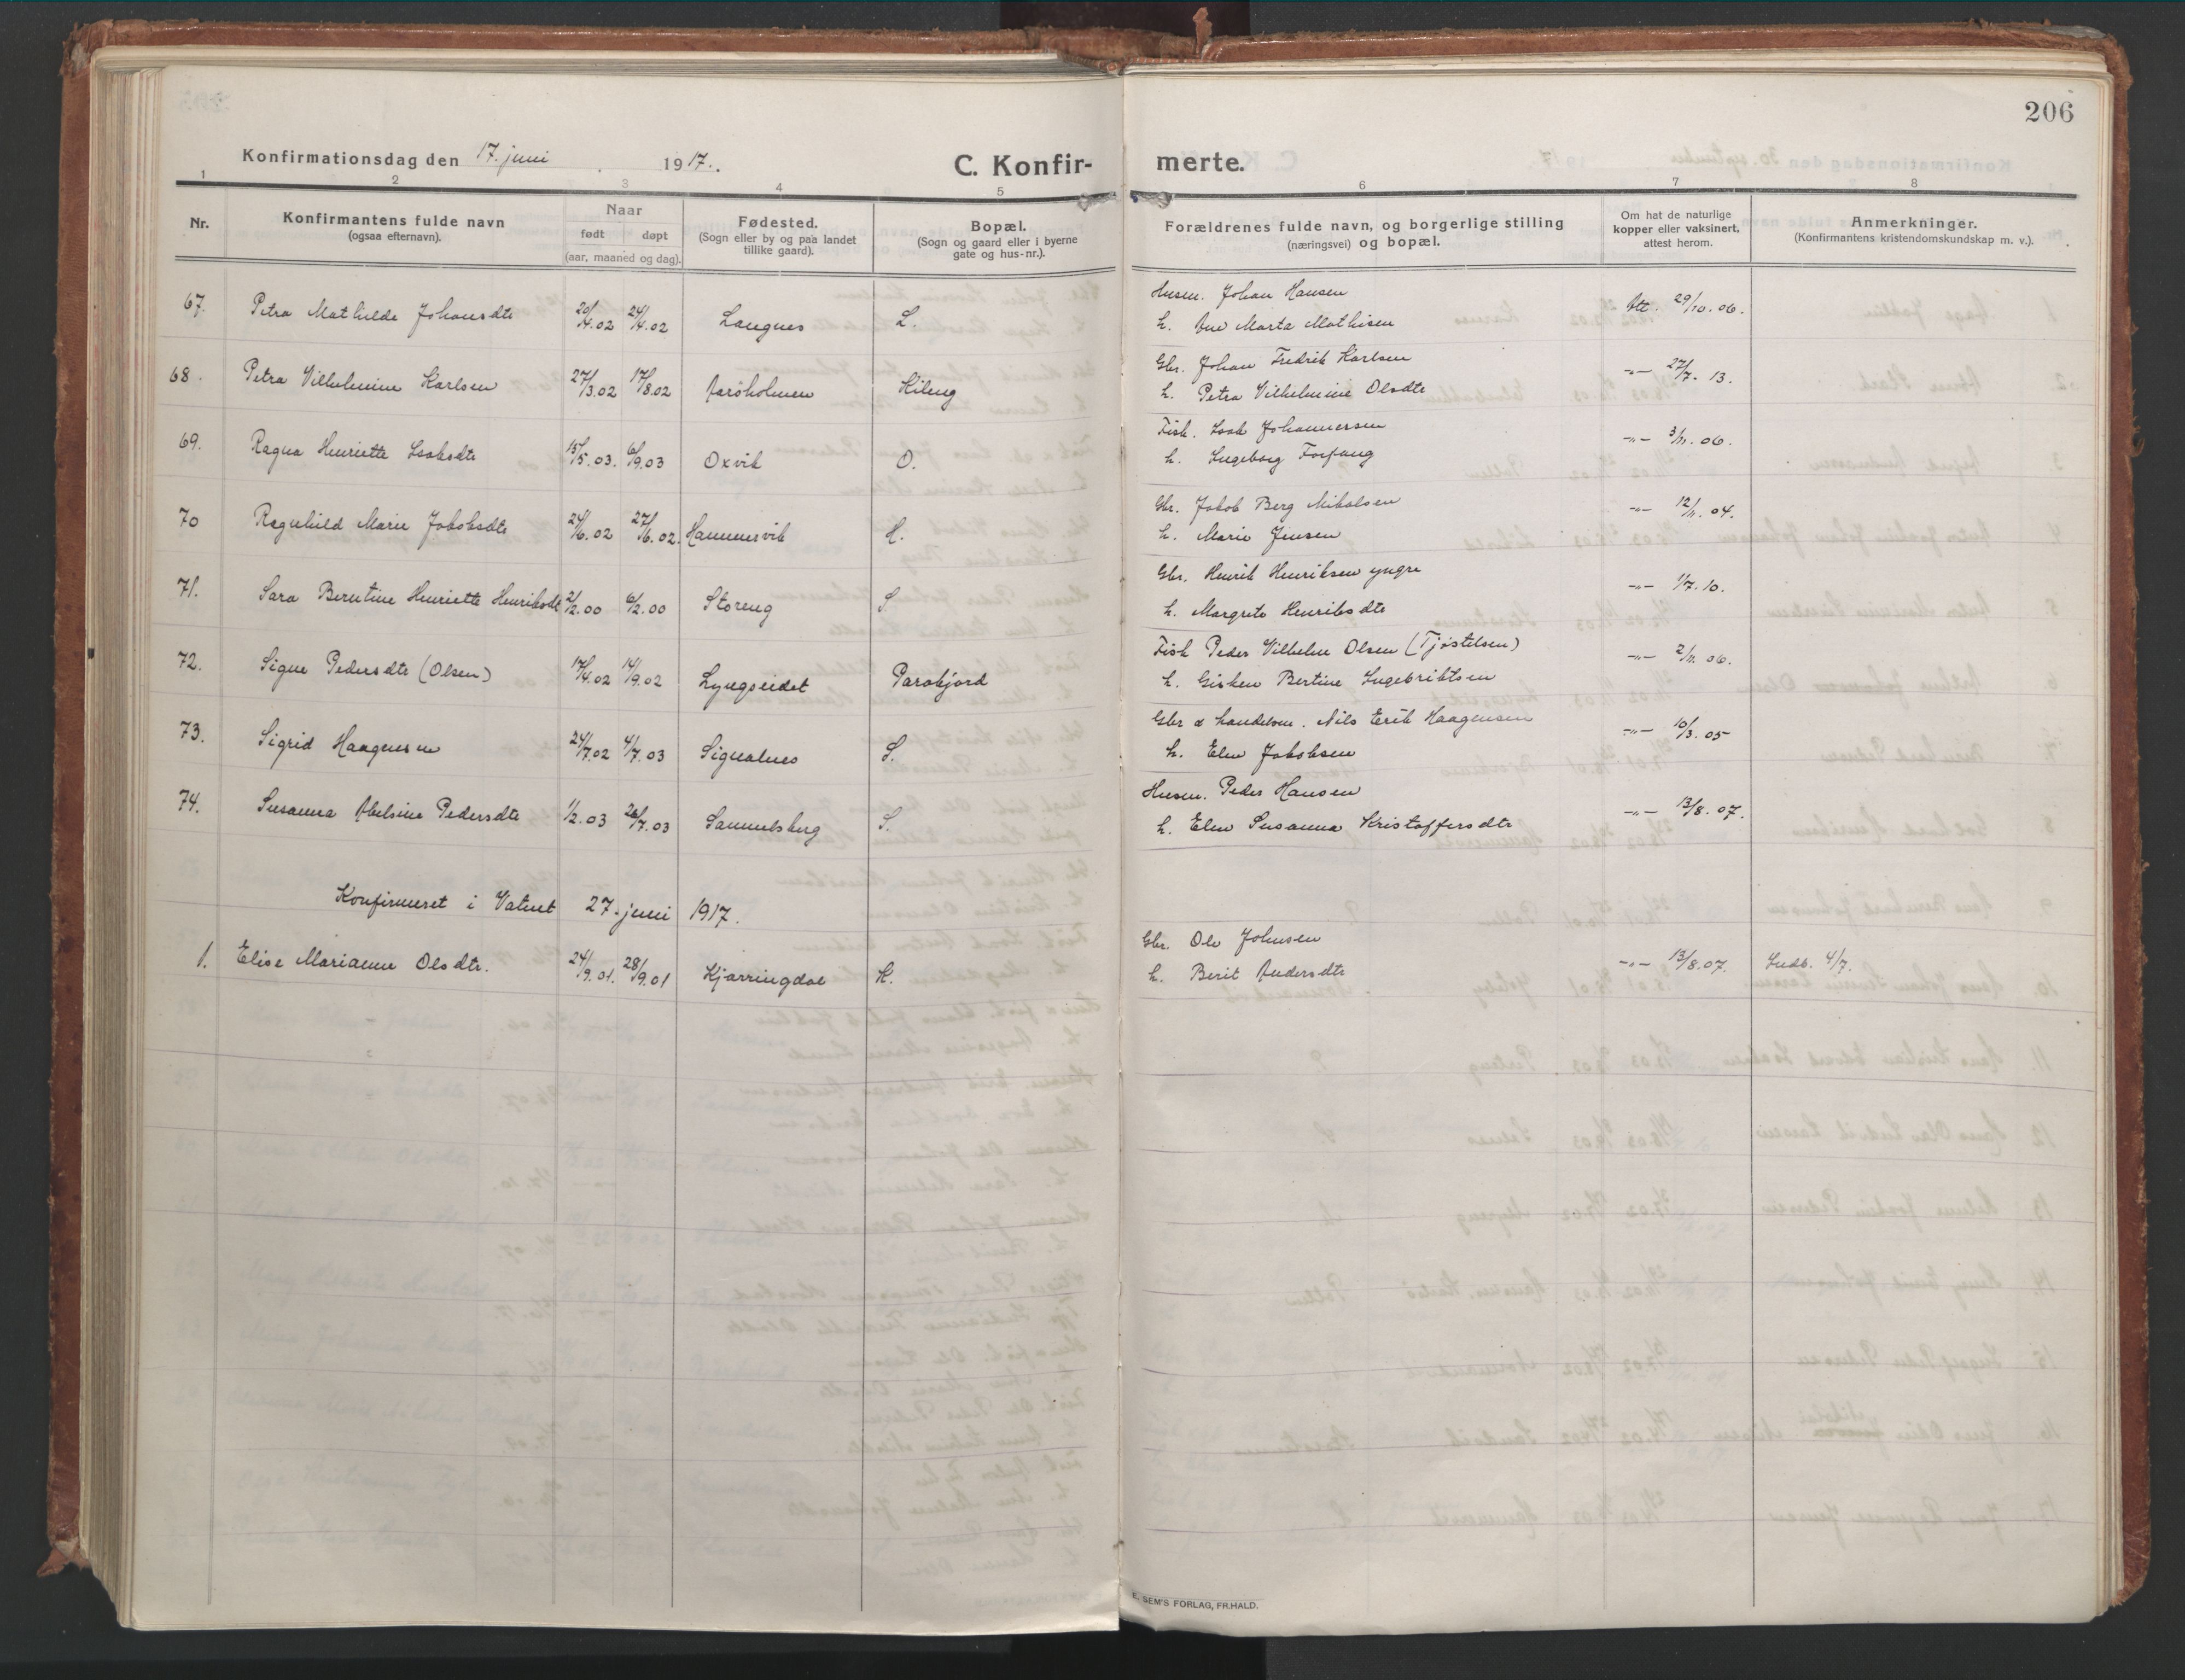 206
Konfirmationsdag den 17. juni 1917. C. Konfirmerte.
1 2 3 4 5 6 7 8
Nr. Konfirmantens fulde navn (ogsaa efternavn). Naar født døpt (aar, maaned og dag). Fødested. (Sogn eller by og paa landet tillike gaard). Bopæl. (Sogn og gaard eller i byerne gate og hus-nr.). Forældrenes fulde navn, og borgerlige stilling (næringsvei) og bopæl. Om hat de naturlige kopper eller vaksinert, attest herom. Anmerkninger. (Konfirmantens kristendomskundskap m. v.).
67. Petra Mathilde Johansdtr 20/4.02 24/4.02 Langnes L. Husm. Johan Hansen
h. Ane Marta Mathisen Att. 29/10.06.
68. Petra Vilhelmine Karlsen 27/3.02 17/8.02 Aarøholmen Kileng Gbr. Johan Fredrik Karlsen
h. Petra Vilhelmine Olsdtr -"- 27/7.13.
69. Ragna Henriette Isaksdtr 15/5.03. 6/9.03 Oxvik O. Fisk. Isak Johannersen
h. Ingeborg Forfang -"- 3/11.06.
70 Ragnhild Marie Jakobsdtr 24/6.02 27/6.02. Hammervik H. Gbr. Jakob Berg Mikalsen
h. Marie Jensen -"- 12/11.04.
71. Sara Berntine Henriette Henriksdtr 2/2.00 6/2.00 Storeng S. Gbr. Henrik Henriksen yngre
h. Margrete Henriksdtr -"- 1/7.10.
72. Signe Pedersdtr (Olsen) 17/4.02 14/9.02 Lyngseidet Parakjord Fisk Peder Vilhelm Olsen (Tjøstelsen)
h. Gisken Bertine Ingebriktsen -"- 2/11.06.
73. Sigrid Haagensen 24/7.02 4/7.03 Signalnes S. Gbr & handelsm. Nils Erik Haagensen
h. Elen Jakobsen -"- 10/3.05
74. Susanna Abelsine Pedersdtr 1/2.03 26/7.03 Samuelsberg S. Husm. Peder Hansen
h. Elen Susanna Kristoffersdtr -"- 13/8.07.
Konfirmeret i Vatnet 27. juni 1917.
1. Elise Marianne Olsdtr. 24/9.01. 28/9.01 Kjærringdal K. Gbr. Ole Johnsen
h. Berit Andersdtr -"- 13/8.07. Indb. 4/7.
E. SEM'S FORLAG, FR.HALD.